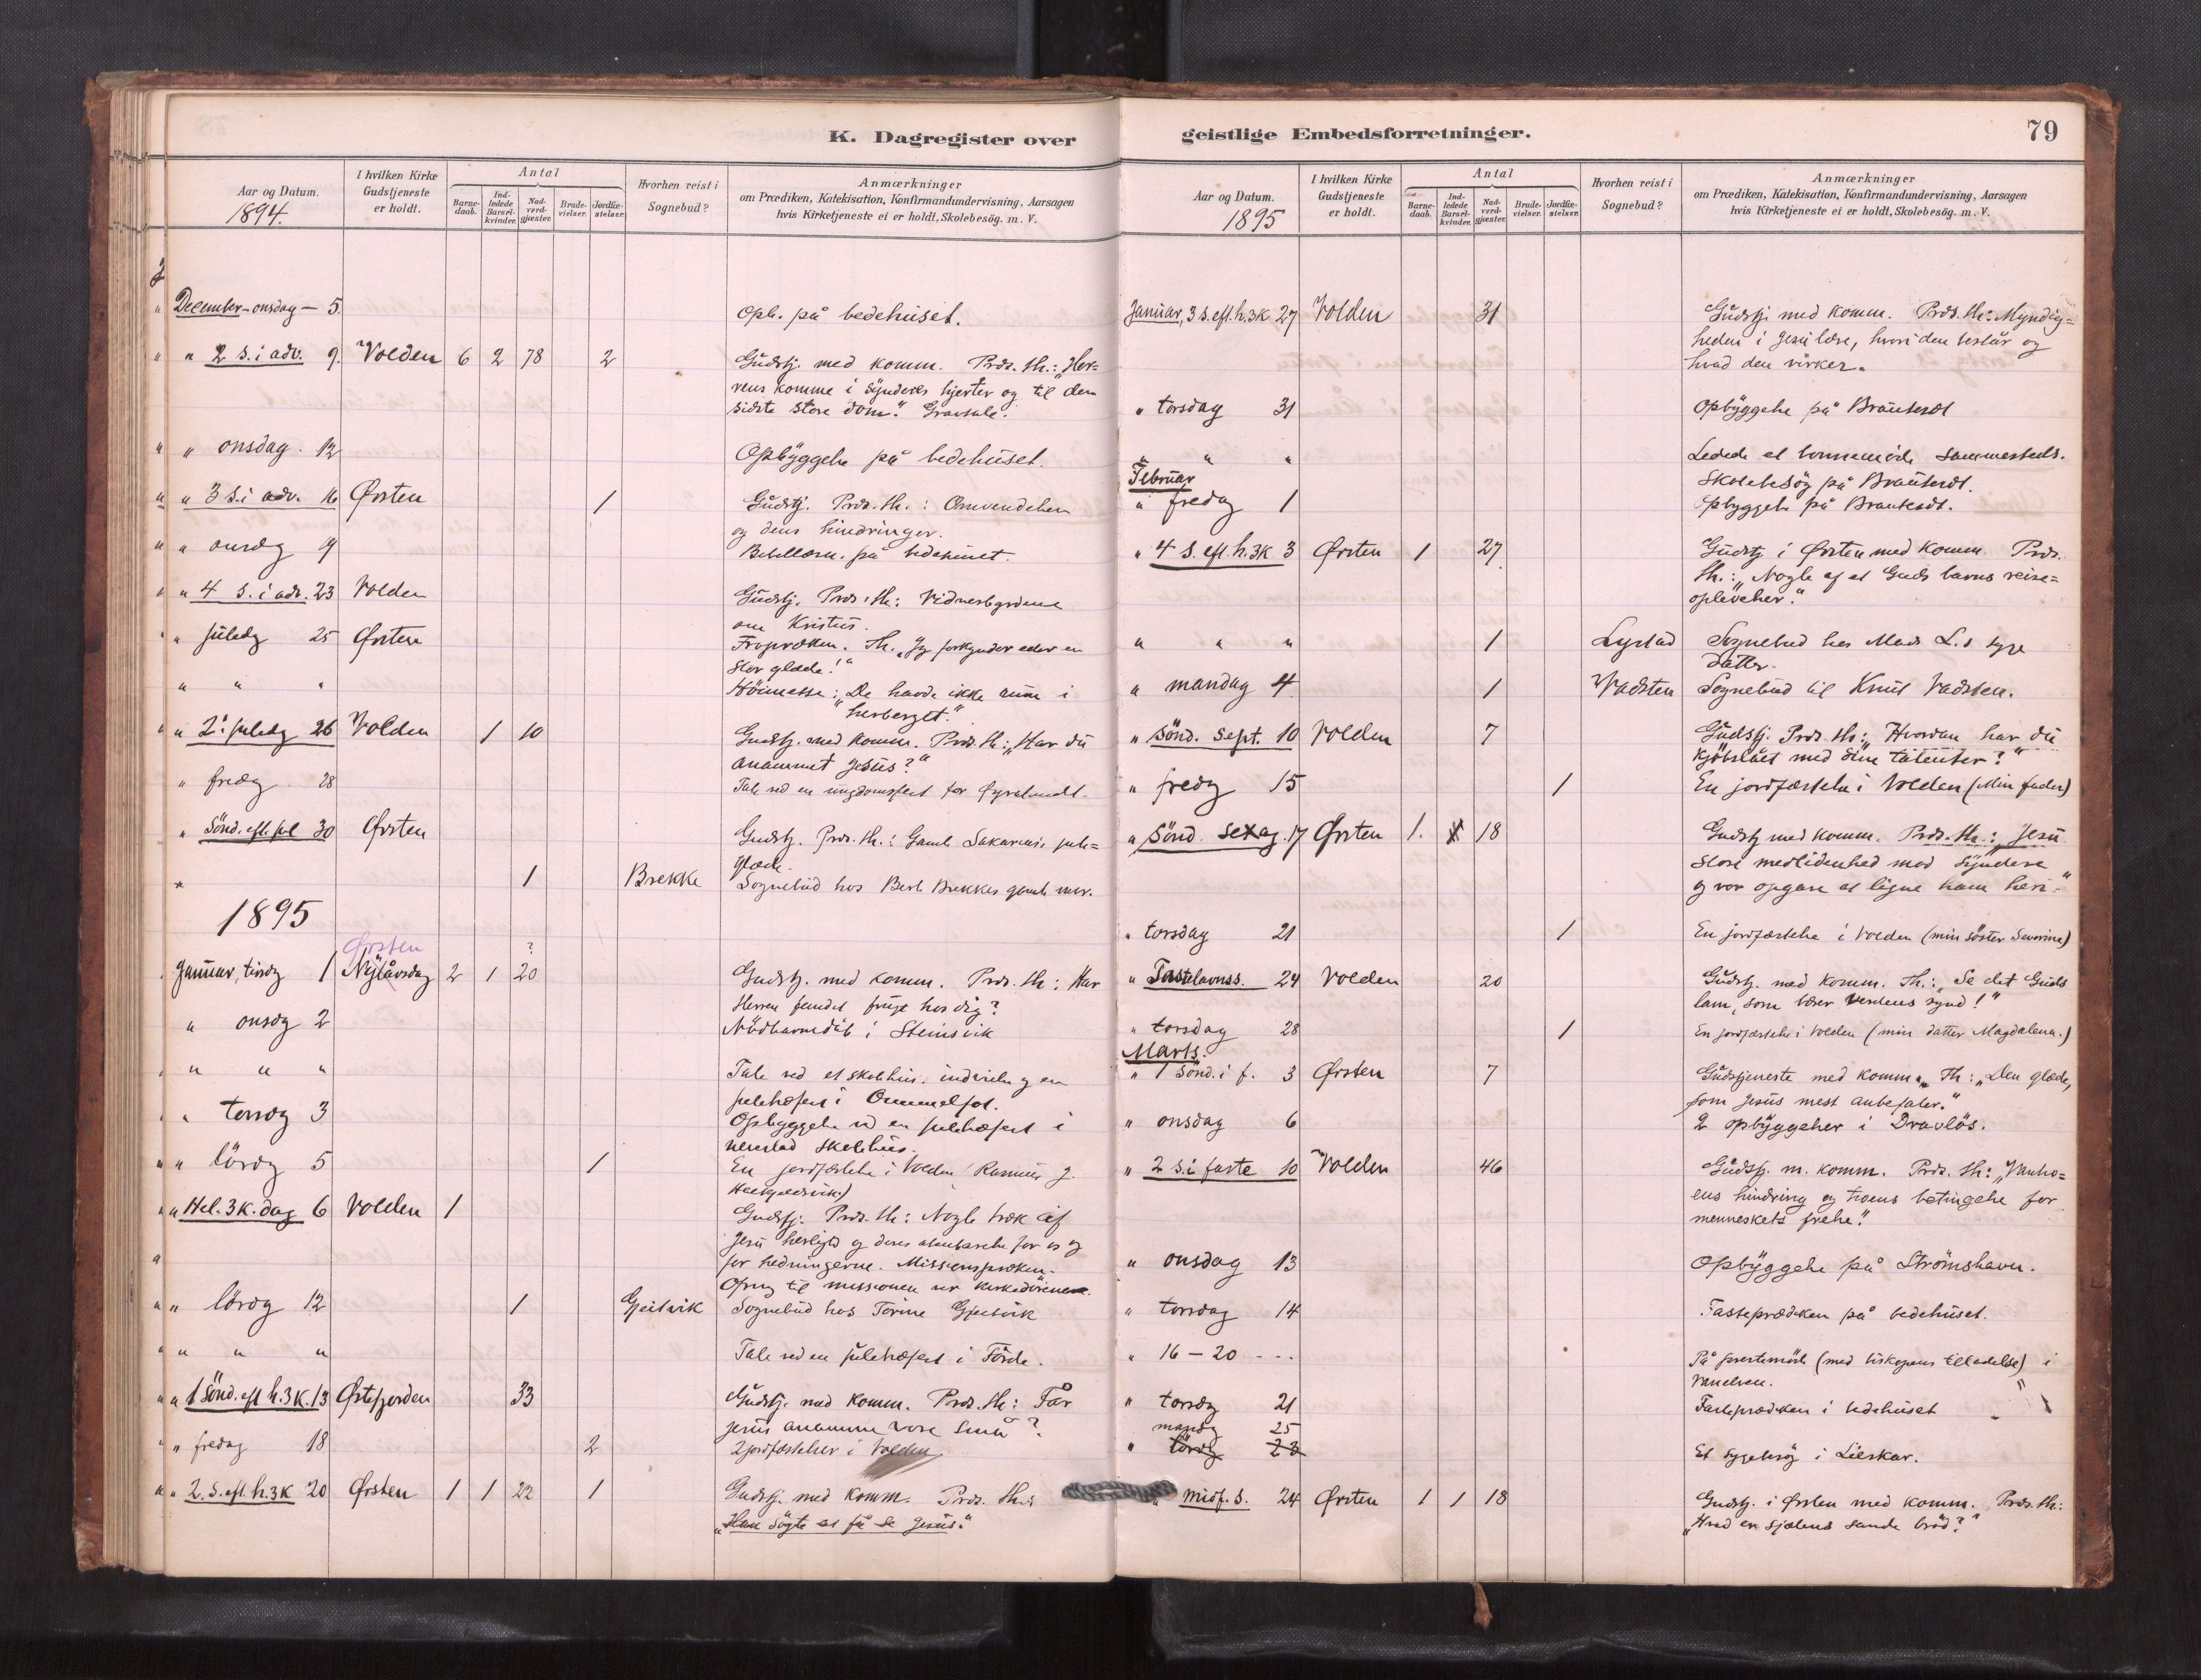 K. Dagregister over
Aar og Datum.
1894.
I hvilken Kirke Gudstjeneste er holdt.
Antal
Barne-daab.
Ind-ledede Barsel-kvinder.
Nad-verd-gjester.
Brude-vielser.
Jordfæ-stelser.
Hvorhen reist i Sognebud?
Anmærkninger
om Prædiken, Katekisation, Konfirmandundervisning, Aarsagen
hvis Kirketjeneste ei er holdt, Skolebesög. m. V.
" December - onsdag - 5. Opb. på bedehuset.
" " 2 s. i adv. 9. Volden 6 2 78 2 Gudstj. med komm. Præd. th.: "Her-
rens komme i synderes hjerter og til den
sidste store dom." Gravtale.
" " onsdag. 12 Opbyggelse på bedehuset.
" " 3 s. i adv. 16 Örsten 1 Gudstj. Præd. th.: Omvendelsen
og dens hindringer.
" " onsdag 19 Bibellæsn. på bedehuset.
" " 4 s. i adv. 23 Volden Gudstj. Præd. th: Vidnesbyrdene
om Kristus.
" " juledag 25 Örsten Froprædken. Th. "Jeg forkynder eder en
stor glæde!"
" " " Höimesse: "De havde ikke rum i
herberget."
" " 2. juledag 26 Volden 1 10 Gudstj. med komm. Præd. th: "Har du
anammet Jesus?"
" fredag 28 Tale ved en ungdomsfest for
" Sönd. eft. jul 30 Örsten Gudstj. Præd. th.: Gamle jule-
glæde.
" 1 Brekke Sognebud hos Berte Brekkes gamle mor.
1895
Örsten ?
Januar, tirsdag 1 Nytårsdag 2 1 20 Gudstj. med komm. Præd. th: Har
Herren fundet frugt hos dig?
" onsdag 2 Nödbarnedåb i Steinsvik
" " " Tale ved et skolehus. indvielse og en
juletræfest i
" torsdag 3 Opbyggelse ved en juletræfest i
skolehus.
" " lördag 5 1 En jordfæstelse i Volden (Rasmus J.
" " Hel. 3 K. dag 6 Volden 1 Gudstj. Præd. th: Nogle træk af
Jesu herlighed og deres åbenbarelse for os og
for hedningerne. Missionsprædken.
Ofring til missionen ved kirkedörene.
" " lördag 12 1 Gjeitvik Sognebud hos Torine Gjeitvik
" " " " Tale ved en juletræfest i Förde.
" " 1 Sönd. eft h. 3 K. 13 Örstefjorden 33 Gudstj. med komm. Præd. th: Får
Jesus anamme vore små?
" " fredag 18 2 2 jordfæstelser i Volden
" " 2. S. eft. h. 3K 20 Örsten 1 1 22 1 Gudstj. med komm. Præd. th:
"Han sögte at få se Jesus."
geistlige Embedsforretninger.
79
Aar og Datum.
1895
I hvilken Kirke Gudstjeneste er holdt.
Antal
Barne-daab.
Ind-ledede Barsel-kvinder.
Nad-verd-gjæster.
Brude-vielser.
Jordfæ-stelser.
Hvorhen reist i Sognebud?
Anmærkninger
om Prædiken, Katekisation, Konfirmandundervisning, Aarsagen
hvis Kirketjeneste ei er holdt, Skolebesög. m. V.
Januar, 3 s. eft. h. 3K 27 Volden 31 Gudstj. med komm. Præd. th: Myndig=
heden i Jesu lære, hvori den består og
hvad den virker.
" torsdag 31 Opbyggelse på Brautesæt
" " " Ledede et bönnemöde sammesteds.
Februar Skolebesög på Brautesæt.
" fredag 1 Opbyggelse på Brautesæt.
" 4 S. eft h. 3K 3 Örsten 1 27 Gudstj i Örsten med komm. Præd.
th.: "Nogle af et Guds barns reise=
oplevelser."
" " " 1 Lystad Sognebud hos Mads L.s syge
datter.
" mandag 4 1 Vadsten Sognebud til Knut Vadsten.
" Sönd. Sept. 10 Volden 7 Gudstj. Præd. th: "Hvordan har du
kjöbslået med dine talenter?"
" fredag 15 1 En jordfæstelse i Volden (Min fader)
" Sönd. Sexag. 17 Örsten 1. 18 Gudstj med komm. Præd. th: "Jesu
store medlidenhed med syndere
og vor opgave at ligne ham heri."
" torsdag 21 1 En jordfæstelse i Volden (min söster Severine)
" Fastelavnss. 24 Volden 20 Gudstj. med komm. Th.: "Se det Guds
lam, som bærer verdens synd!"
" torsdag 28 1 En jordfæstelse i Volden (min datter Magdalena.)
Marts.
" 1 Sönd. i f. 3 Örsten 7 Gudstjeneste med komm. Th: "Den glæde,
som Jesus mest anbefaler."
" onsdag 6 2 opbyggelser i Dravlös.
" 2 s. i faste 10 Volden 46 Gudstj. m. komm. Præd. th: "Vantro=
ens hindring og troens betingelse for
menneskets frelse."
" onsdag 13 Opbyggelse på Strömshavn.
" torsdag 14 Fasteprædken på bedehuset.
" 16 - 20 - - - På prestemöde (med biskopens tilladelse) i
Vanelven.
" torsdag 21 Fasteprædken i bedehuset
mandag 25
" lördag 23 Et sygebesög i Lilleskar.
" Midf. S. 24 Örsten 1 1 18 Gudstj. i Örsten med komm. Præd. th:
"Hvad er sjælens sande bröd?"